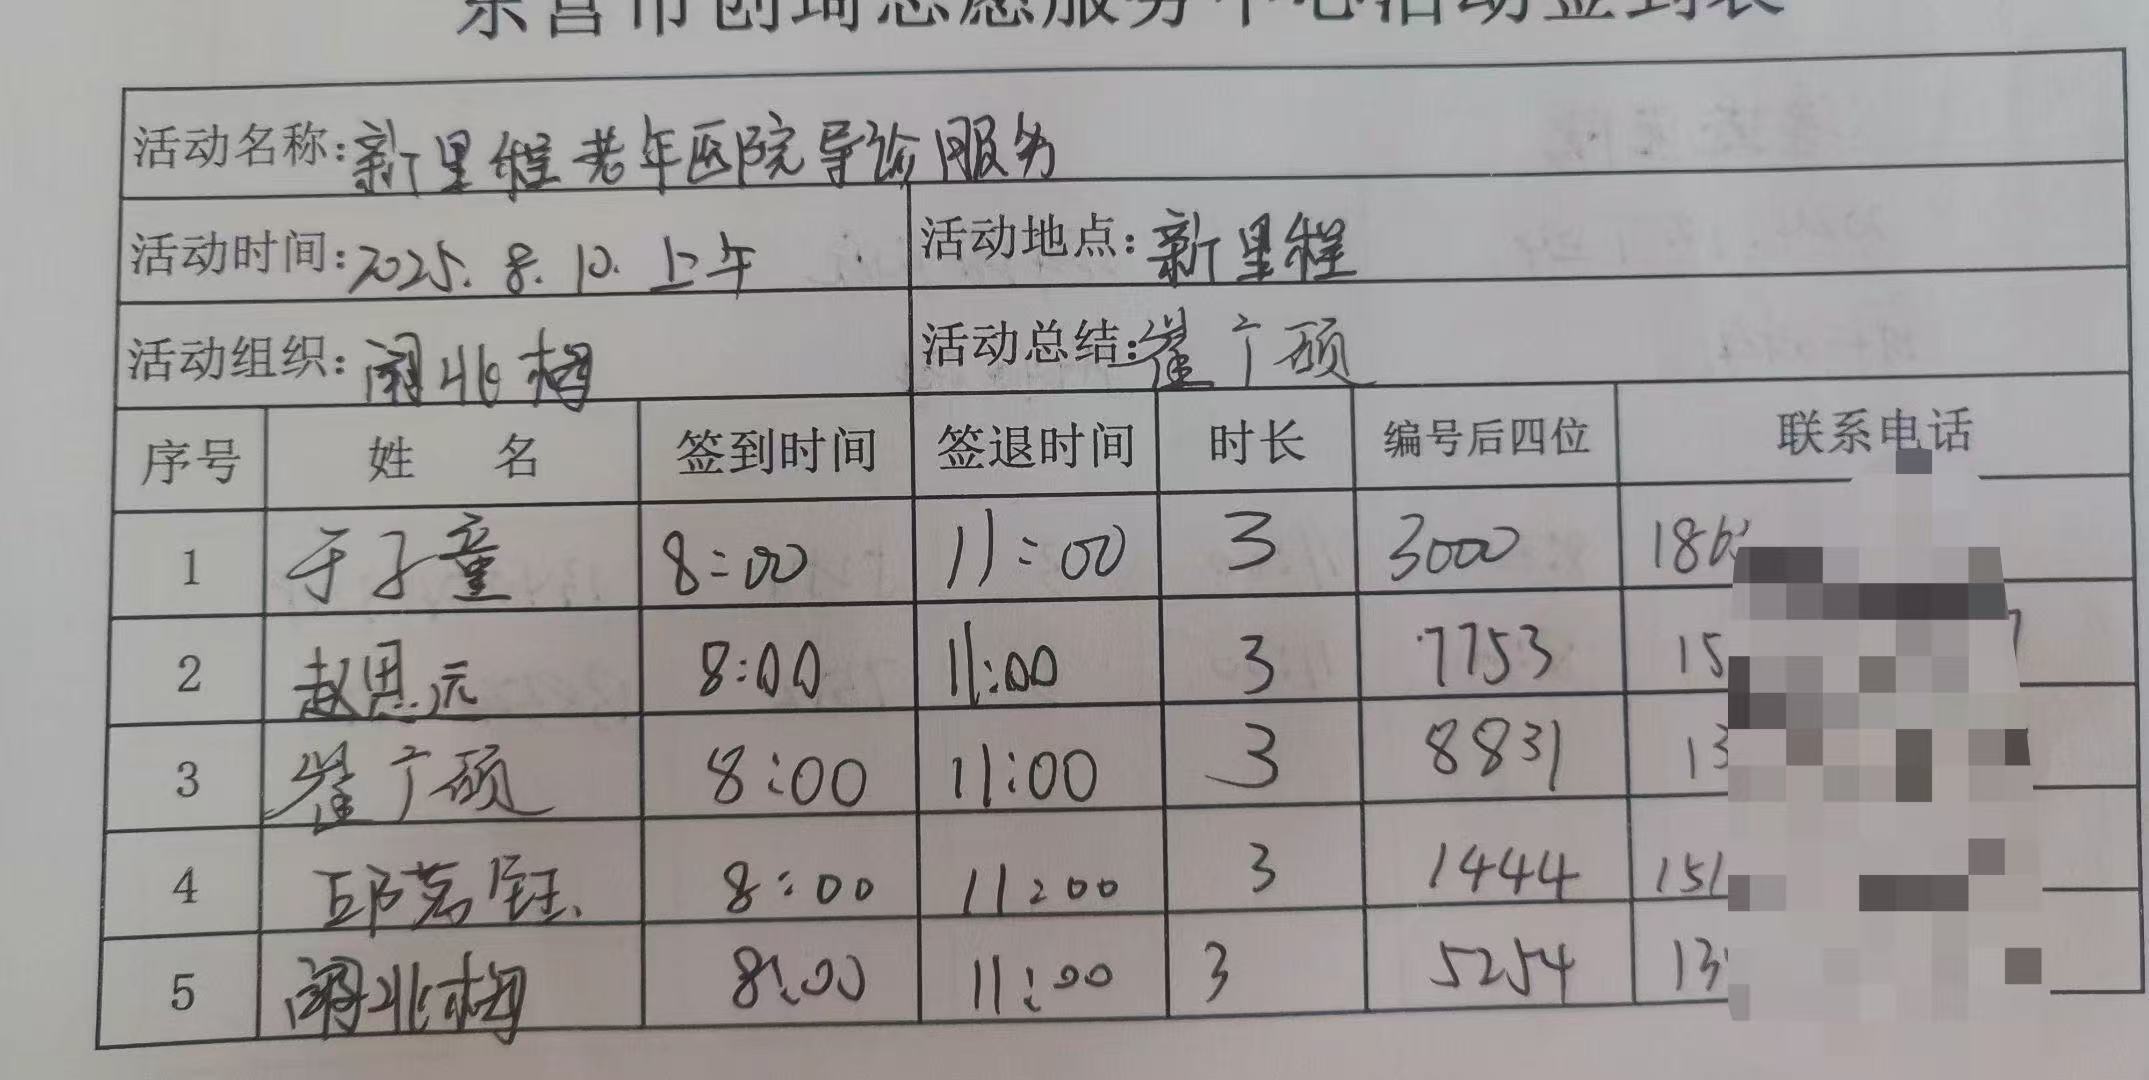 东营市创琦志愿服务中心活动签到表
活动名称:新里程老年医院导诊服务
活动时间:2025.8.10.上午 活动地点:新里程
活动组织:阎北梅 活动总结:崔广硕
序号 姓 名 签到时间 签退时间 时长 编号后四位 联系电话
1 于子童 8:00 11:00 3 3000 186
2 赵思元 8:00 11:00 3 7753 15
3 崔广硕 8:00 11:00 3 8831 13
4 邱茗钰 8:00 11:00 3 1444 151
5 阎北梅 8:00 11:00 3 5254 13